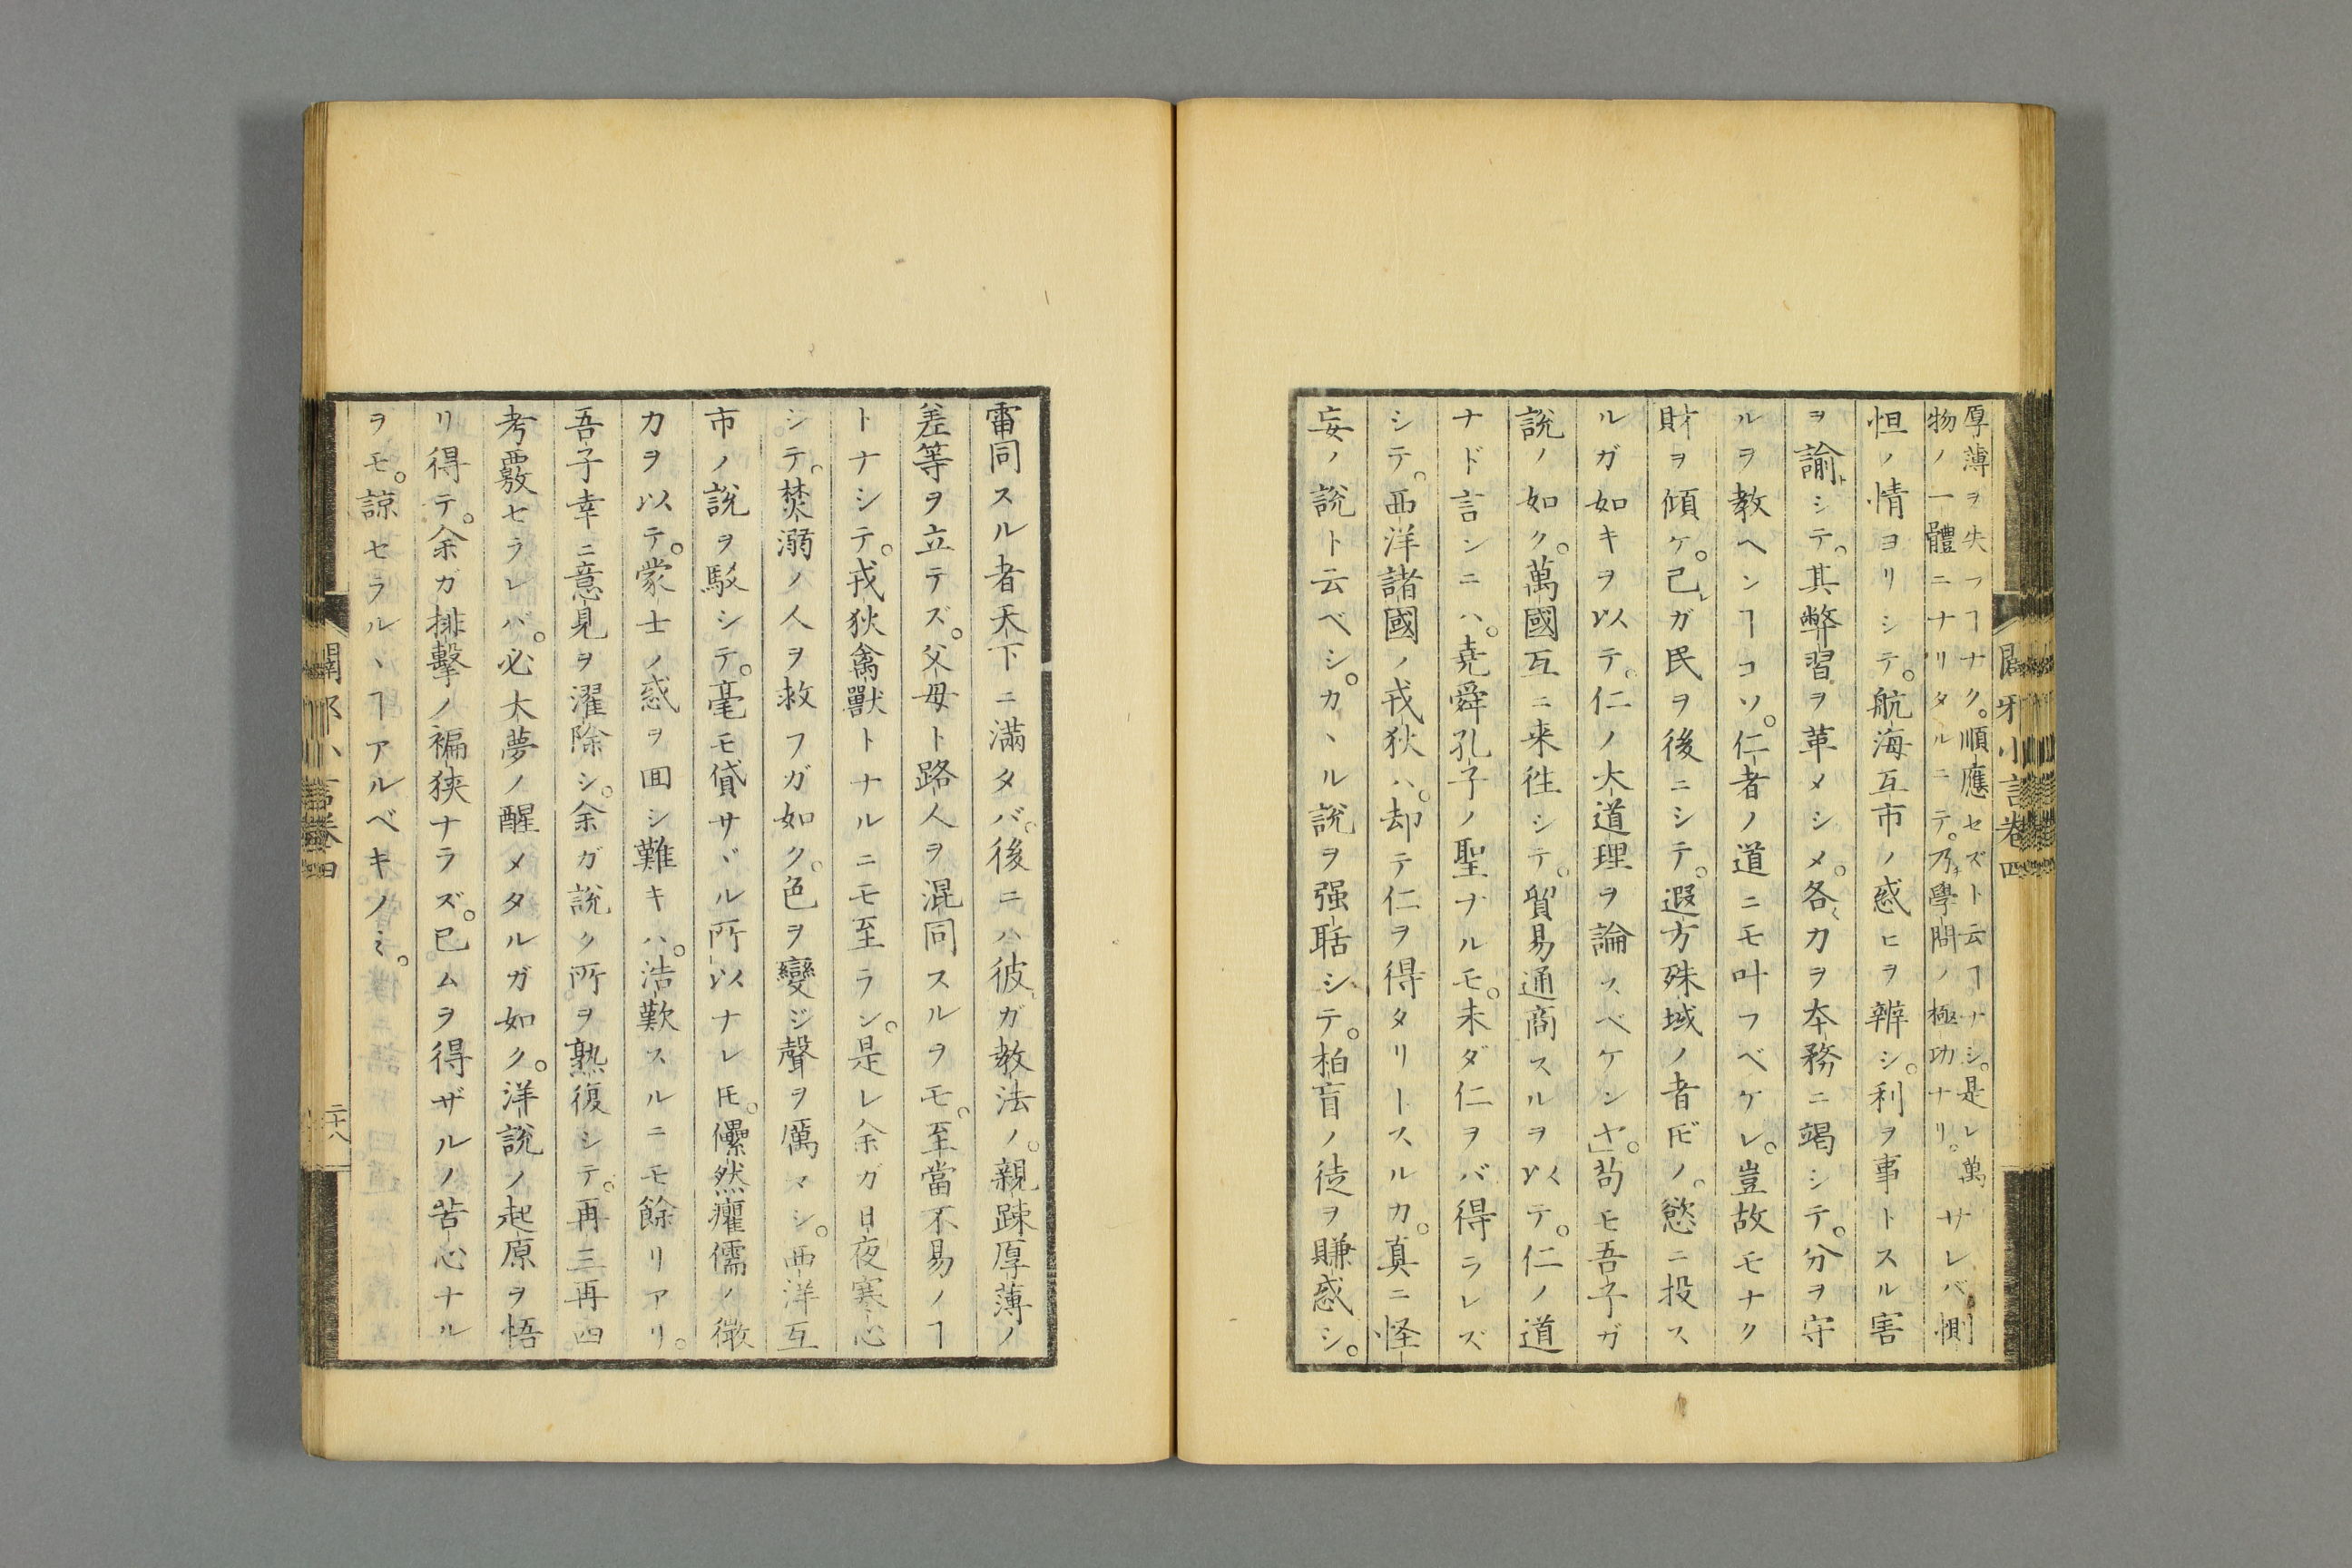 厚薄ヲ失フヿナク。順應セズト云ヿナシ。是レ萬
物ノ一體ニナリタルニテ。乃學問ノ極功ナリ。サレバ惻
怛ノ情ヨリシテ。航海互市ノ惑ヒヲ辨シ。利ヲ事トスル害
ヲ諭シテ。其弊習ヲ革メシメ。各〻力ヲ本務ニ竭シテ。分ヲ守
ルヲ教ヘンヿコソ。仁者ノ道ニモ叶フベケレ。豈故モナク
財ヲ傾ケ。己レガ民ヲ後ニシテ。遐方殊域ノ者𪜈ノ。慾ニ投ス
ルガ如キヲ以テ。仁ノ大道理ヲ論スベケンヤ」。苟モ吾子ガ
說ノ如ク。萬國互ニ来徃シテ。貿易通商スルヲ以テ。仁ノ道
ナド言ンニハ。堯舜孔子ノ聖ナルモ。未ダ仁ヲバ得ラレズ
シテ。西洋諸國ノ戎狄ハ。却テ仁ヲ得タリトスルカ。真ニ怪
妄ノ說ト云ベシ。カヽル說ヲ强聒シテ。柏盲ノ徒ヲ賺惑シ。
闢邪小言卷四
雷同スル者天下ニ滿タバ。後ニハ彼ガ教法ノ。親踈厚薄ノ
差等ヲ立テズ。父母ト路人ヲ混同スルヲモ。至當不易ノヿ
トナシテ。戎狄禽獸トナルニモ至ラン。是レ余ガ日夜寒心
シテ。焚溺ノ人ヲ救フガ如ク。色ヲ變ジ聲ヲ厲マシ。西洋互
市ノ說ヲ駁シテ。毫モ貸サヾル所以ナレ𪜈。儽然癯儒ノ微
力ヲ以テ。蒙士ノ惑ヲ回シ難キハ。浩歎スルニモ餘リアリ。
吾子幸ニ意見ヲ濯除シ。余ガ說ク所ヲ熟復シテ。再三再四
考覈セラレバ。必大夢ノ醒メタルガ如ク。洋說ノ起原ヲ悟
リ得テ。余ガ排擊ノ褊狹ナラズ。已ムヲ得ザルノ苦心ナル
ヲモ。諒セラルヽヿアルベキノミ。
闢邪小言卷四
二十八